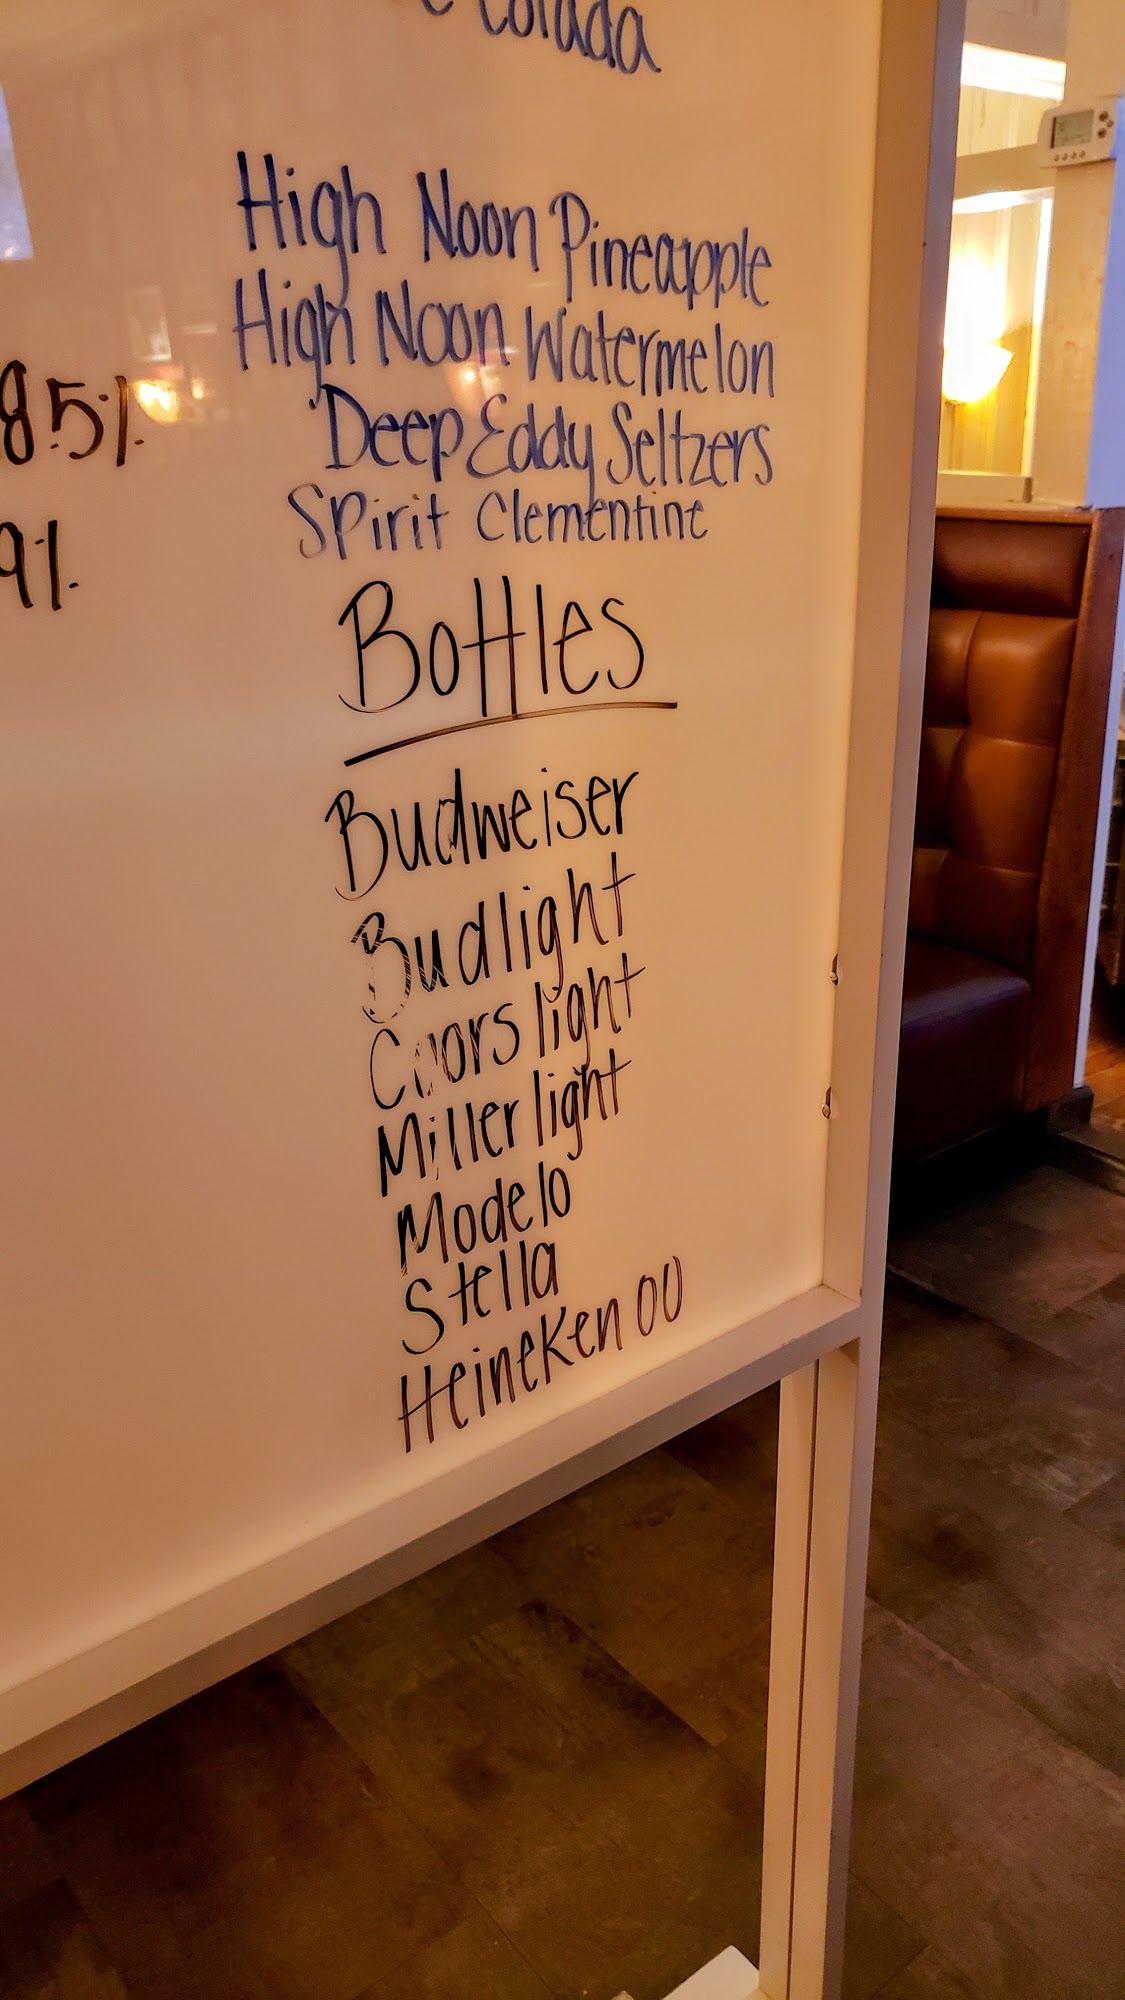 Colada
High Noon Pineapple
High Noon Watermelon
Deep Eddy Seltzers
Spirit Clementine
8.5%
9%
Bottles
Budweiser
Budlight
Coors light
Miller light
Modelo
Stella
Heineken 00